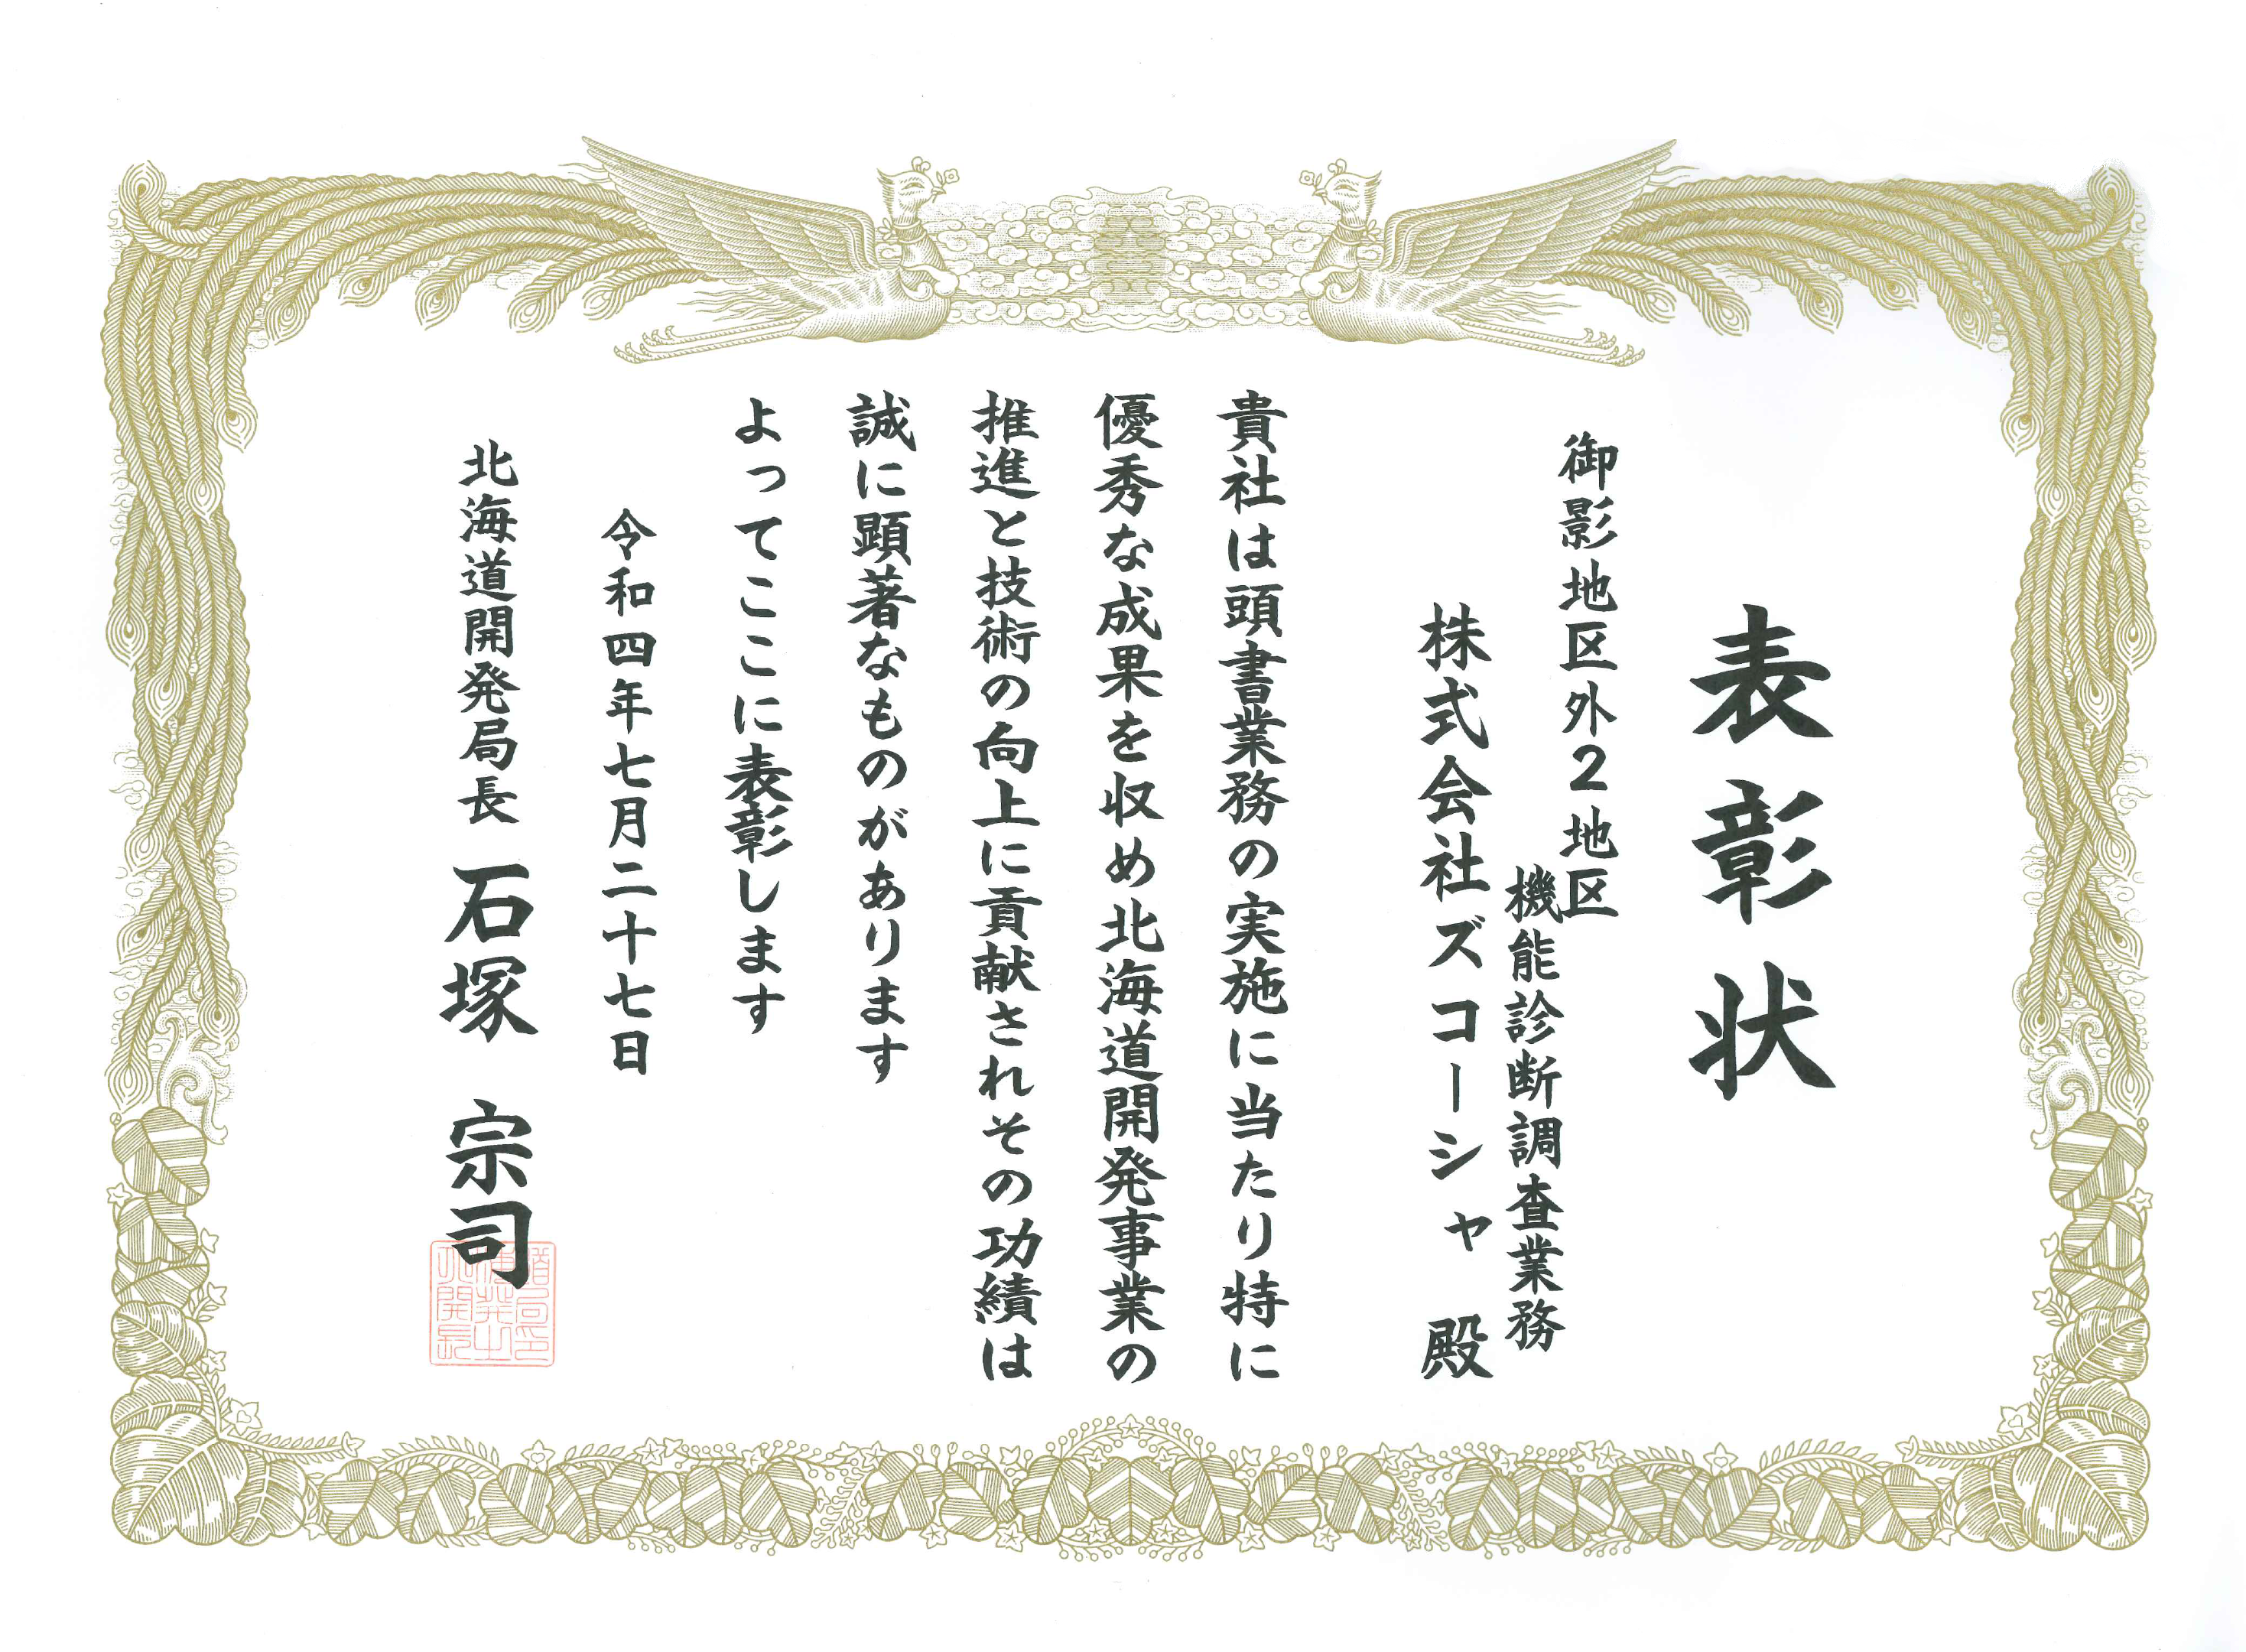 表彰状
御影地区外2地区
機能診断調査業務
株式会社ズコーシャ 殿
貴社は頭書業務の実施に当たり特に
優秀な成果を収め北海道開発事業の
推進と技術の向上に貢献されその功績は
誠に顕著なものがあります
よってここに表彰します
令和四年七月二十七日
北海道開発局長 石塚 宗司